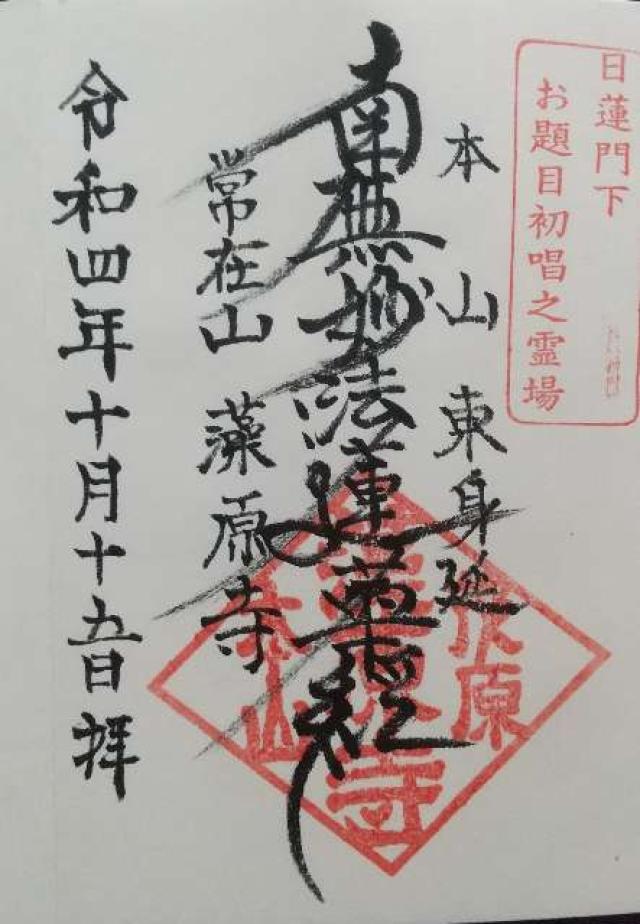 日蓮門下
お題目初唱之霊場
本山 東身延
南無妙法蓮華経
常在山 藻原寺
令和四年十月十五日 拝